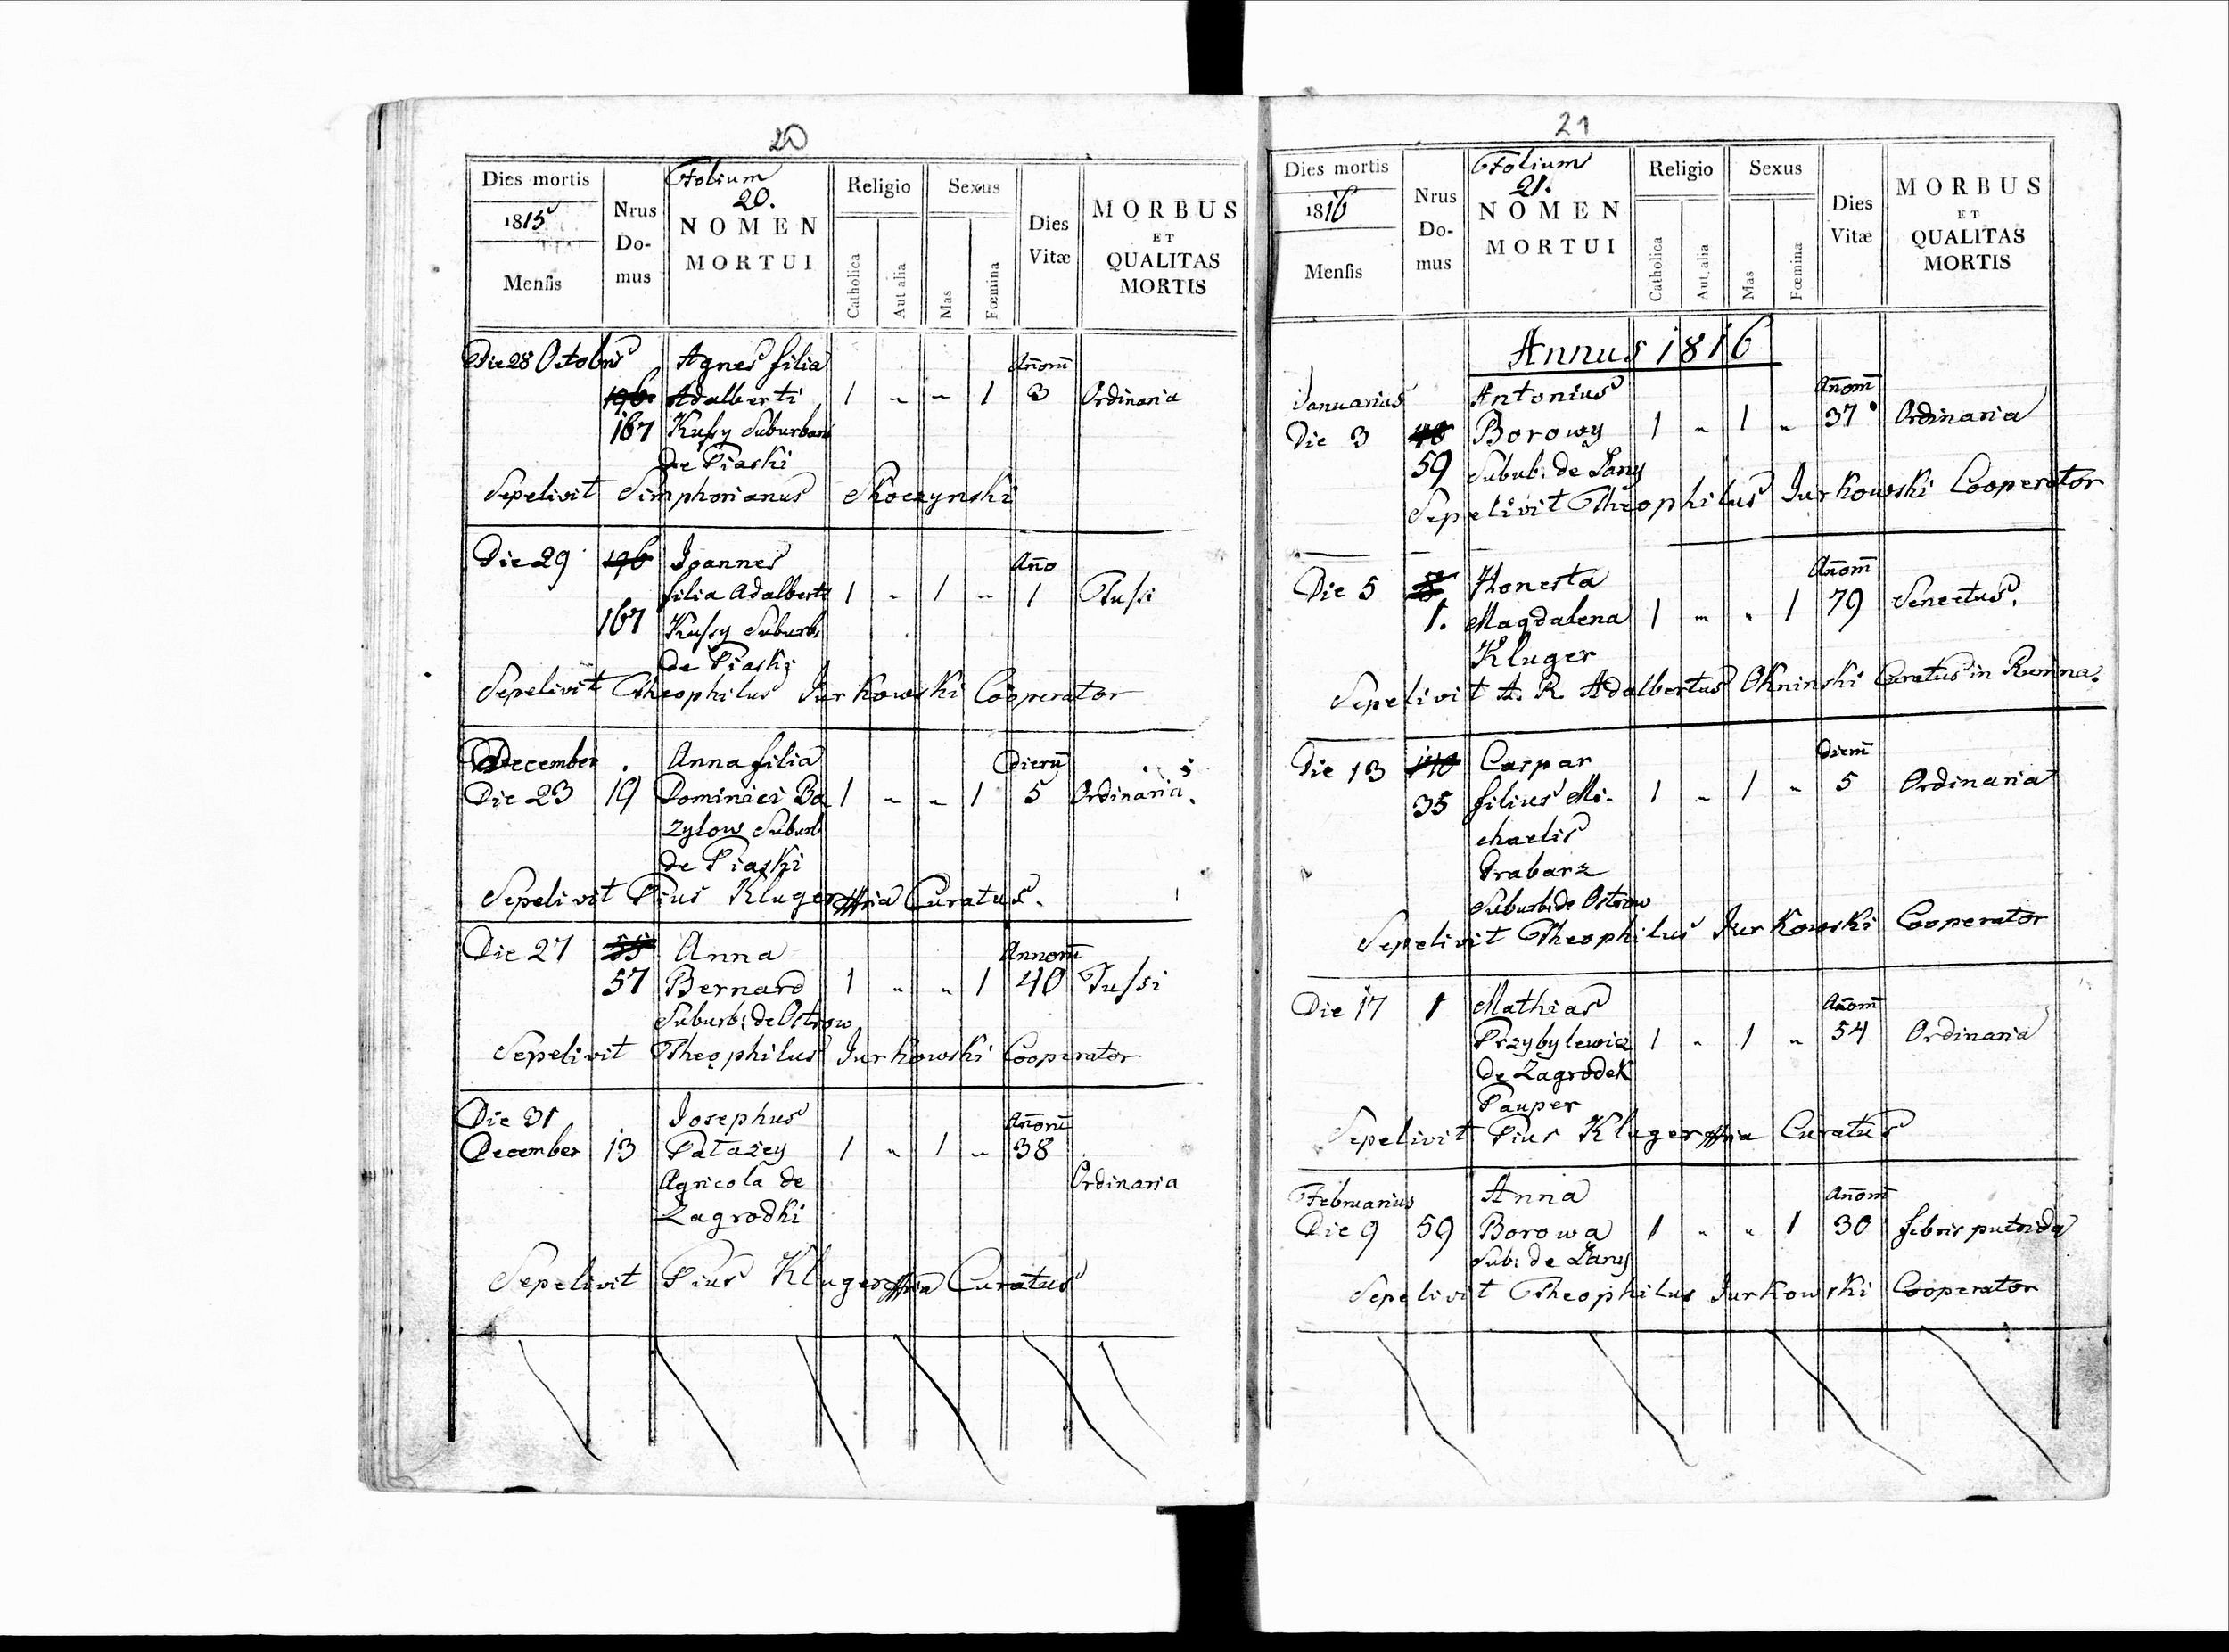 20
Dies mortis
1815
Mensis
Nrus Domus
Folium
20.
NOMEN
MORTUI
Religio
Catholica
Aut alia
Sexus
Mas
Fœmina
Dies
Vitæ
MORBUS
ET
QUALITAS
MORTIS
Die 28 Octobris Agnes filia Añorũ
196 Adalberti 1 " " 1 3 Ordinaria
167 Kussy Suburbani
de Piaski
Sepelivit Simphorianus Skoczynski
Die 29 196 Joannes Año
filia Adalberti 1 " 1 " 1 Tussi
167 Kussy Suburb.
de Piaski
Sepelivit Theophilus Jurkowski Cooperator
December Anna filia Dierũ
Die 23 19 Dominici Ba 1 " " 1 5 Ordinaria.
zylow Suburb
de Piaski
Sepelivit Pius Kluger Curatus.
Die 27 Anna Annorũ
57 Bernard 1 " " 1 40 Tussi
Suburb: de Ostrow
Sepelivit Theophilus Jurkowski Cooperator
Die 31 Josephus Añorũ
December 13 Patazey 1 " 1 " 38
Agricola de Ordinaria
Zagrodki
Sepelivit Pius Kluger Curatus
21
Dies mortis
1816
Mensis
Nrus Domus
Folium
21.
NOMEN
MORTUI
Religio
Catholica
Aut alia
Sexus
Mas
Fœmina
Dies
Vitæ
MORBUS
ET
QUALITAS
MORTIS
Annus 1816
Januarius Antonius Añorũ
Die 3 48 Borowy 1 " 1 " 37 Ordinaria
59 Subub. de Łany
Sepelivit Theophilus Jurkowski Cooperator
Die 5 Honesta Añorũ
1. Magdalena 1 " " 1 79 Senectus.
Kluger
Sepelivit A. R. Adalbertus Okninski Curatus in Rumna.
Die 13 Caspar Dierũ
35 filius Mi- 1 " 1 " 5 Ordinaria
chaelis
Grabarz
Suburb: de Ostrow
Sepelivit Theophilus Jurkowski Cooperator
Die 17 1 Mathias Añorũ
Przybylewicz 1 " 1 " 54 Ordinaria
de Zagrodek
Pauper
Sepelivit Pius Kluger Curatus
Februarius Anna Añorũ
Die 9 59 Borowa 1 " " 1 30 febris putrida
Sub: de Łany
Sepelivit Theophilus Jurkowski Cooperator